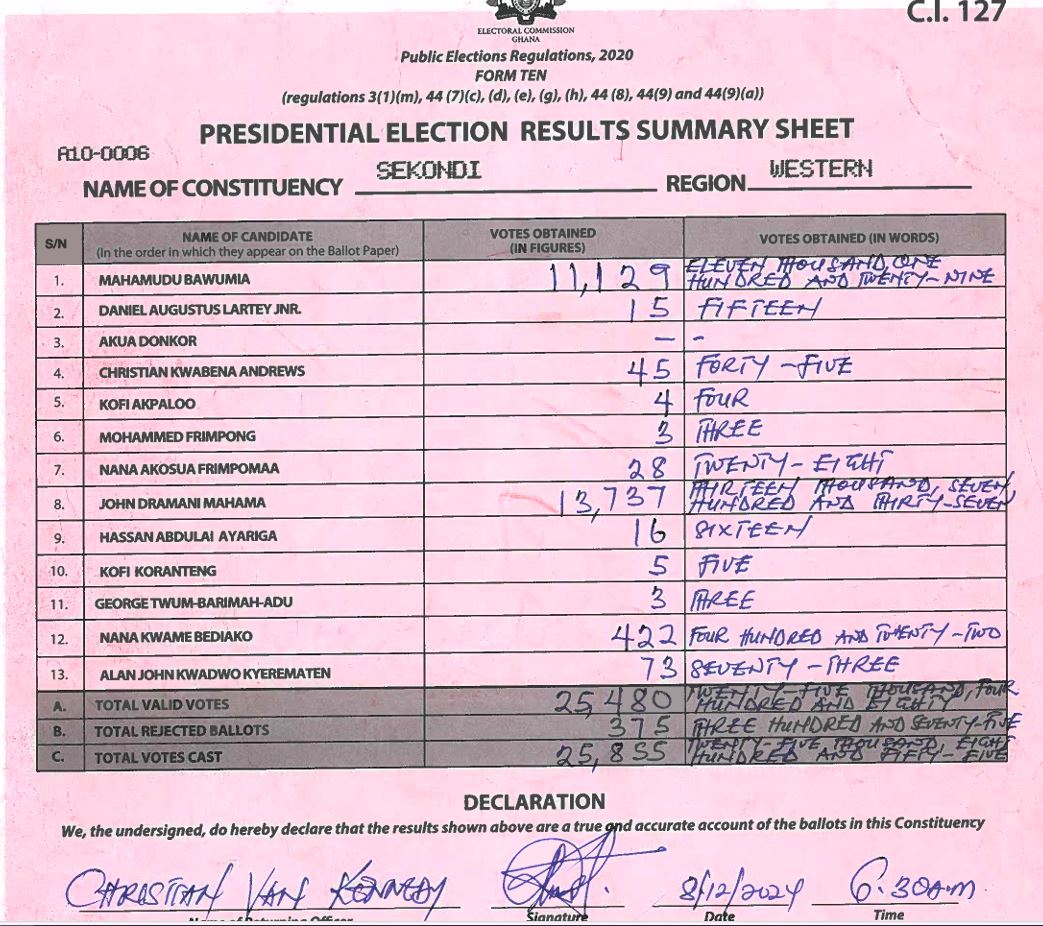 C.I. 127
ELECTORAL COMMISSION
GHANA
Public Elections Regulations, 2020
FORM TEN
(regulations 3(1)(m), 44 (7)(c), (d), (e), (g), (h), 44 (8), 44(9) and 44(9)(a))
PRESIDENTIAL ELECTION RESULTS SUMMARY SHEET
A10-0006
NAME OF CONSTITUENCY SEKONDI REGION WESTERN
S/N NAME OF CANDIDATE (In the order in which they appear on the Ballot Paper) VOTES OBTAINED (IN FIGURES) VOTES OBTAINED (IN WORDS)
1. MAHAMUDU BAWUMIA 11,129 ELEVEN THOUSAND, ONE HUNDRED AND TWENTY-NINE
2. DANIEL AUGUSTUS LARTEY JNR. 15 FIFTEEN
3. AKUA DONKOR — -
4. CHRISTIAN KWABENA ANDREWS 45 FORTY-FIVE
5. KOFI AKPALOO 4 FOUR
6. MOHAMMED FRIMPONG 3 THREE
7. NANA AKOSUA FRIMPOMAA 28 TWENTY-EIGHT
8. JOHN DRAMANI MAHAMA 13,737 THIRTEEN THOUSAND, SEVEN HUNDRED AND THIRTY-SEVEN
9. HASSAN ABDULAI AYARIGA 16 SIXTEEN
10. KOFI KORANTENG 5 FIVE
11. GEORGE TWUM-BARIMAH-ADU 3 THREE
12. NANA KWAME BEDIAKO 422 FOUR HUNDRED AND TWENTY-TWO
13. ALAN JOHN KWADWO KYEREMATEN 73 SEVENTY-THREE
A. TOTAL VALID VOTES 25,480 TWENTY-FIVE THOUSAND, FOUR HUNDRED AND EIGHTY
B. TOTAL REJECTED BALLOTS 375 THREE HUNDRED AND SEVENTY-FIVE
C. TOTAL VOTES CAST 25,855 TWENTY-FIVE THOUSAND EIGHT HUNDRED AND FIFTY-FIVE
DECLARATION
We, the undersigned, do hereby declare that the results shown above are a true and accurate account of the ballots in this Constituency
CHRISTIAN VAN KENNEDY 8/12/2024 6:30am
Name of Returning Officer Signature Date Time